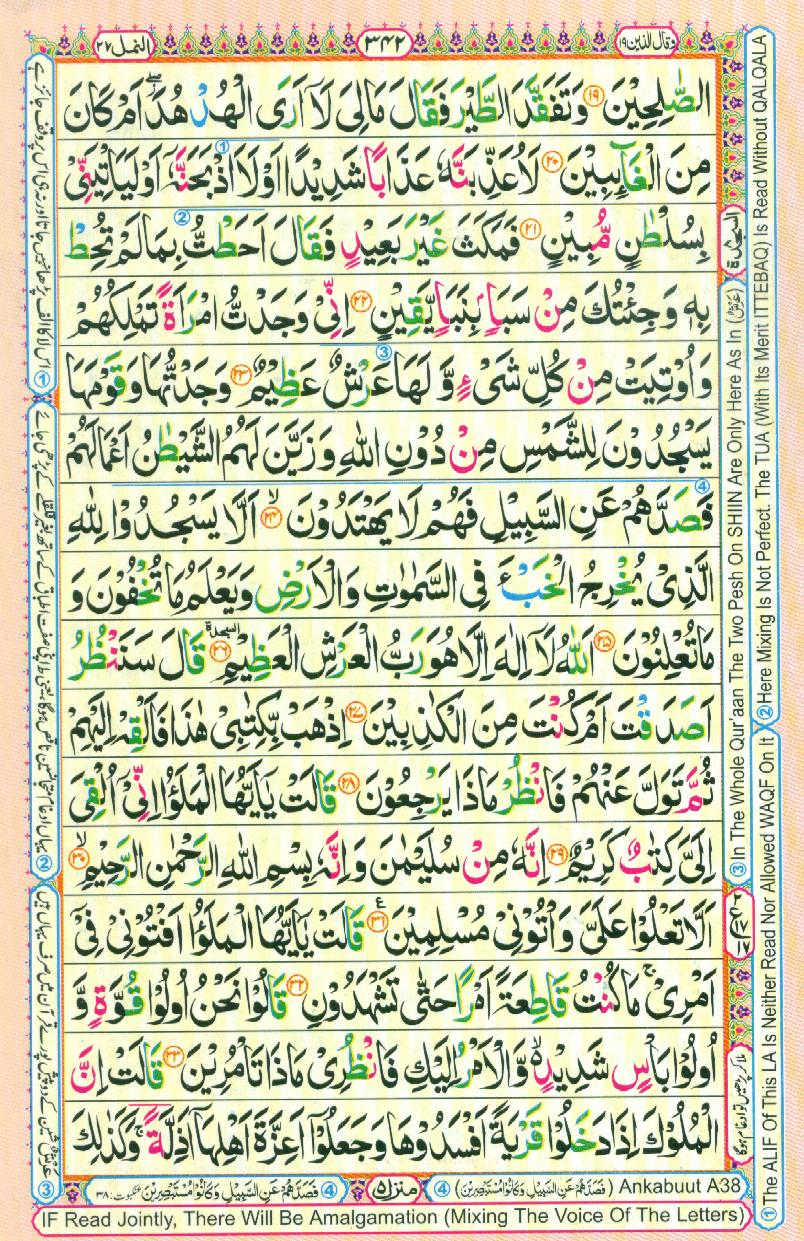 وقال الذین ١٩
٣٤٢
النمل ٢٧
الصّٰلِحِيْنَ ﴿١٩﴾ وَتَفَقَّدَ الطَّيْرَ فَقَالَ مَالِیَ لَآ اَرَی الْهُدْهُدَ ۖ اَمْ كَانَ
مِنَ الْغَآئِبِيْنَ ﴿٢٠﴾ لَاُعَذِّبَنَّهٗ عَذَابًا شَدِيْدًا اَوْ لَاَاذْبَحَنَّهٗٓ اَوْ لَيَاْتِيَنِّیْ
بِسُلْطٰنٍ مُّبِيْنٍ ﴿٢١﴾ فَمَكَثَ غَيْرَ بَعِيْدٍ فَقَالَ اَحَطْتُّ بِمَا لَمْ تُحِطْ
بِهٖ وَجِئْتُكَ مِنْ سَبَاٍۭ بِنَبَاٍ يَّقِيْنٍ ﴿٢٢﴾ اِنِّیْ وَجَدْتُّ امْرَاَةً تَمْلِكُهُمْ
وَاُوْتِيَتْ مِنْ كُلِّ شَیْءٍ وَّلَهَا عَرْشٌ عَظِيْمٌ ﴿٢٣﴾ وَجَدْتُّهَا وَقَوْمَهَا
يَسْجُدُوْنَ لِلشَّمْسِ مِنْ دُوْنِ اللهِ وَزَيَّنَ لَهُمُ الشَّيْطٰنُ اَعْمَالَهُمْ
فَصَدَّهُمْ عَنِ السَّبِيْلِ فَهُمْ لَا يَهْتَدُوْنَ ۙ﴿٢٤﴾ اَلَّا يَسْجُدُوْا لِلّٰهِ
الَّذِیْ يُخْرِجُ الْخَبْءَ فِی السَّمٰوٰتِ وَالْاَرْضِ وَيَعْلَمُ مَا تُخْفُوْنَ وَ
مَا تُعْلِنُوْنَ ﴿٢٥﴾ اَللّٰهُ لَآ اِلٰهَ اِلَّا هُوَ رَبُّ الْعَرْشِ الْعَظِيْمِ ﴿٢٦﴾ السجدة قَالَ سَنَنْظُرُ
اَصَدَقْتَ اَمْ كُنْتَ مِنَ الْكٰذِبِيْنَ ﴿٢٧﴾ اِذْهَبْ بِّكِتٰبِیْ هٰذَا فَاَلْقِهْ اِلَيْهِمْ
ثُمَّ تَوَلَّ عَنْهُمْ فَانْظُرْ مَاذَا يَرْجِعُوْنَ ﴿٢٨﴾ قَالَتْ يٰٓاَيُّهَا الْمَلَؤُا اِنِّیْٓ اُلْقِیَ
اِلَیَّ كِتٰبٌ كَرِيْمٌ ﴿٢٩﴾ اِنَّهٗ مِنْ سُلَيْمٰنَ وَاِنَّهٗ بِسْمِ اللهِ الرَّحْمٰنِ الرَّحِيْمِ ۙ﴿٣٠﴾
اَلَّا تَعْلُوْا عَلَیَّ وَاْتُوْنِیْ مُسْلِمِيْنَ ﴿٣١﴾ ع قَالَتْ يٰٓاَيُّهَا الْمَلَؤُا اَفْتُوْنِیْ فِیْٓ
اَمْرِیْ ۚ مَا كُنْتُ قَاطِعَةً اَمْرًا حَتّٰی تَشْهَدُوْنِ ﴿٣٢﴾ قَالُوْا نَحْنُ اُولُوْا قُوَّةٍ وَّ
اُولُوْا بَاْسٍ شَدِيْدٍ ۙ وَّالْاَمْرُ اِلَيْكِ فَانْظُرِیْ مَاذَا تَاْمُرِيْنَ ﴿٣٣﴾ قَالَتْ اِنَّ
الْمُلُوْكَ اِذَا دَخَلُوْا قَرْيَةً اَفْسَدُوْهَا وَجَعَلُوْٓا اَعِزَّةَ اَهْلِهَآ اَذِلَّةً ۚ وَكَذٰلِكَ
السجدة
① The ALIF Of This LA Is Neither Read Nor Allowed WAQF On It ② Here Mixing Is Not Perfect. The TUA (With Its Merit ITTEBAQ) Is Read Without QALQALA
③ In The Whole Qur'aan The Two Pesh On SHIIN Are Only Here As In (عَرْشٌ)
④ فَصَدَّهُمْ عَنِ السَّبِيْلِ وَكَانُوْا مُسْتَبْصِرِيْنَ عنکبوت: ٣٨
منزل ۵
④ (فَصَدَّهُمْ عَنِ السَّبِيْلِ وَكَانُوْا مُسْتَبْصِرِيْنَ) Ankabuut A38
IF Read Jointly, There Will Be Amalgamation (Mixing The Voice Of The Letters)